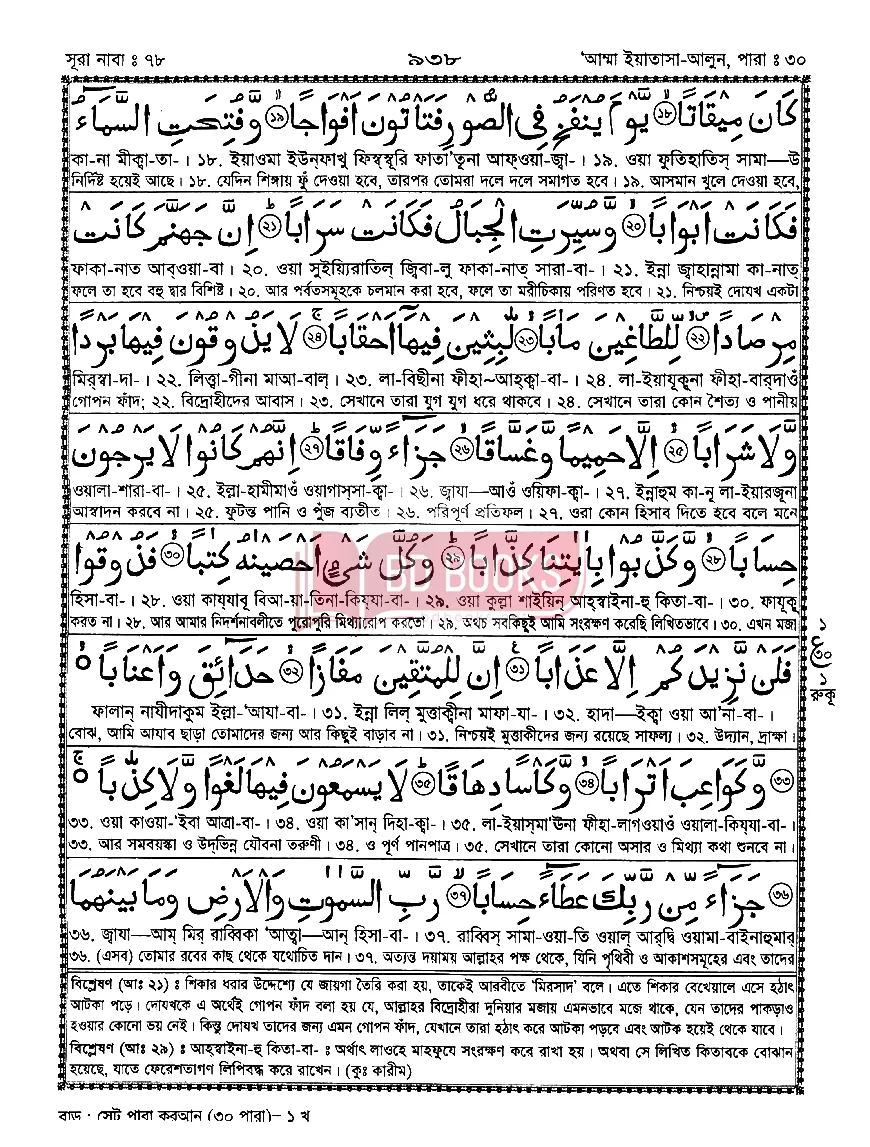 সূরা নাবা ঃ ৭৮ ৯৩৮ 'আম্মা ইয়াতাসা-আলূন, পারা ঃ ৩০
كَانَ مِيقَاتًا ⑱ يَّوْمَ يُنْفَخُ فِي الصُّوْرِ فَتَاْتُوْنَ اَفْوَاجًا ⑲ وَّفُتِحَتِ السَّمَآءُ
কা-না মীক্বা-তা- । ১৮. ইয়াওমা ইউন্‌ফাখু ফিস্‌স্বূরি ফাতা'তূনা আফ্‌ওয়া-জ্বা- । ১৯. ওয়া ফুতিহাতিস্ সামা—উ
নির্দিষ্ট হয়েই আছে । ১৮. যেদিন শিঙ্গায় ফুঁ দেওয়া হবে, তারপর তোমরা দলে দলে সমাগত হবে । ১৯. আসমান খুলে দেওয়া হবে,
فَكَانَتْ اَبْوَابًا ⑳ وَّسُيِّرَتِ الْجِبَالُ فَكَانَتْ سَرَابًا ㉑ اِنَّ جَهَنَّمَ كَانَتْ
ফাকা-নাত আব্‌ওয়া-বা । ২০. ওয়া সুইয়্যিরাতিল্ জ্বিবা-লু ফাকা-নাত্ সারা-বা- । ২১. ইন্না জ্বাহান্নামা কা-নাত্
ফলে তা হবে বহু দ্বার বিশিষ্ট । ২০. আর পর্বতসমূহকে চলমান করা হবে, ফলে তা মরীচিকায় পরিণত হবে । ২১. নিশ্চয়ই দোযখ একটা
مِرْصَادًا ㉒ لِّلطَّاغِيْنَ مَاٰبًا ㉓ لّٰبِثِيْنَ فِيْهَآ اَحْقَابًا ㉔ لَا يَذُوْقُوْنَ فِيْهَا بَرْدًا
মির্‌স্বা-দা- । ২২. লিত্ত্বা-গীনা মাআ-বাল্ । ২৩. লা-বিছীনা ফীহা~আহ্‌ক্বা-বা- । ২৪. লা-ইয়াযূকূনা ফীহা-বার্‌দাওঁ
গোপন ফাঁদ; ২২. বিদ্রোহীদের আবাস । ২৩. সেখানে তারা যুগ যুগ ধরে থাকবে । ২৪. সেখানে তারা কোন শৈত্য ও পানীয়
وَّلَا شَرَابًا ㉕ اِلَّا حَمِيْمًا وَّغَسَّاقًا ㉖ جَزَآءً وِّفَاقًا ㉗ اِنَّهُمْ كَانُوْا لَا يَرْجُوْنَ
ওয়ালা-শারা-বা- । ২৫. ইল্লা-হামীমাওঁ ওয়াগাস্‌সা-ক্বা- । ২৬. জ্বাযা—আওঁ ওয়িফা-ক্বা- । ২৭. ইন্নাহুম কা-নূ লা-ইয়ারজূনা
আস্বাদন করবে না । ২৫. ফুটন্ত পানি ও পুঁজ ব্যতীত । ২৬. পরিপূর্ণ প্রতিফল । ২৭. ওরা কোন হিসাব দিতে হবে বলে মনে
حِسَابًا ㉘ وَّكَذَّبُوْا بِاٰيٰتِنَا كِذَّابًا ㉙ وَكُلَّ شَيْءٍ اَحْصَيْنٰهُ كِتٰبًا ㉚ فَذُوْقُوْا
হিসা-বা- । ২৮. ওয়া কায্‌যাবূ বিআ-য়া-তিনা-কিয্‌যা-বা- । ২৯. ওয়া কুল্লা শাইয়িন্ আহ্‌স্বাইনা-হু কিতা-বা- । ৩০. ফাযূকূ
করত না । ২৮. আর আমার নিদর্শনাবলীতে পুরোপুরি মিথ্যারোপ করতো । ২৯. অথচ সবকিছুই আমি সংরক্ষণ করেছি লিখিতভাবে । ৩০. এখন মজা
فَلَنْ نَّزِيْدَكُمْ اِلَّا عَذَابًا ㉛ اِنَّ لِلْمُتَّقِيْنَ مَفَازًا ㉜ حَدَآئِقَ وَاَعْنَابًا
১
ع
৩০
১
রুকূ
ফালান্ নাযীদাকুম ইল্লা-'আযা-বা- । ৩১. ইন্না লিল্ মুত্তাক্বীনা মাফা-যা- । ৩২. হাদা—ইক্বা ওয়া আ'না-বা- ।
বোঝ, আমি আযাব ছাড়া তোমাদের জন্য আর কিছুই বাড়াব না । ৩১. নিশ্চয়ই মুত্তাকীদের জন্য রয়েছে সাফল্য । ৩২. উদ্যান, দ্রাক্ষা ।
㉝ وَّكَوَاعِبَ اَتْرَابًا ㉞ وَّكَاْسًا دِهَاقًا ㉟ لَا يَسْمَعُوْنَ فِيْهَا لَغْوًا وَّلَا كِذّٰبًا
৩৩. ওয়া কাওয়া-'ইবা আত্রা-বা- । ৩৪. ওয়া কা'সান্ দিহা-ক্বা- । ৩৫. লা-ইয়াস্‌মা'ঊনা ফীহা-লাগওয়াওঁ ওয়ালা-কিয্‌যা-বা- ।
৩৩. আর সমবয়স্কা ও উদ্‌ভিন্ন যৌবনা তরুণী । ৩৪. ও পূর্ণ পানপাত্র । ৩৫. সেখানে তারা কোনো অসার ও মিথ্যা কথা শুনবে না ।
㊱ جَزَآءً مِّنْ رَّبِّكَ عَطَآءً حِسَابًا ㊲ رَّبِّ السَّمٰوٰتِ وَالْاَرْضِ وَمَا بَيْنَهُمَا
৩৬. জ্বাযা—আম্ মির্ রাব্বিকা 'আত্বা—আন্ হিসা-বা- । ৩৭. রাব্বিস্ সামা-ওয়া-তি ওয়াল্ আর্‌দ্বি ওয়ামা-বাইনাহুমার্
৩৬. (এসব) তোমার রবের কাছ থেকে যথোচিত দান । ৩৭. অত্যন্ত দয়াময় আল্লাহর পক্ষ থেকে, যিনি পৃথিবী ও আকাশসমূহের এবং তাদের
বিশ্লেষণ (আঃ ২১) ঃ শিকার ধরার উদ্দেশ্যে যে জায়গা তৈরি করা হয়, তাকেই আরবীতে 'মিরসাদ' বলে । এতে শিকার বেখেয়ালে এসে হঠাৎ
আটকা পড়ে । দোযখকে এ অর্থেই গোপন ফাঁদ বলা হয় যে, আল্লাহর বিদ্রোহীরা দুনিয়ার মজায় এমনভাবে মজে থাকে, যেন তাদের পাকড়াও
হওয়ার কোনো ভয় নেই । কিন্তু দোযখ তাদের জন্য এমন গোপন ফাঁদ, যেখানে তারা হঠাৎ করে আটকা পড়বে এবং আটক হয়েই থেকে যাবে ।
বিশ্লেষণ (আঃ ২৯) ঃ আহ্‌স্বাইনা-হু কিতা-বা- ঃ অর্থাৎ লাওহে মাহফুযে সংরক্ষণ করে রাখা হয় । অথবা সে লিখিত কিতাবকে বোঝান
হয়েছে, যাতে ফেরেশতাগণ লিপিবদ্ধ করে রাখেন । (কুঃ কারীম)
BD BOOKS